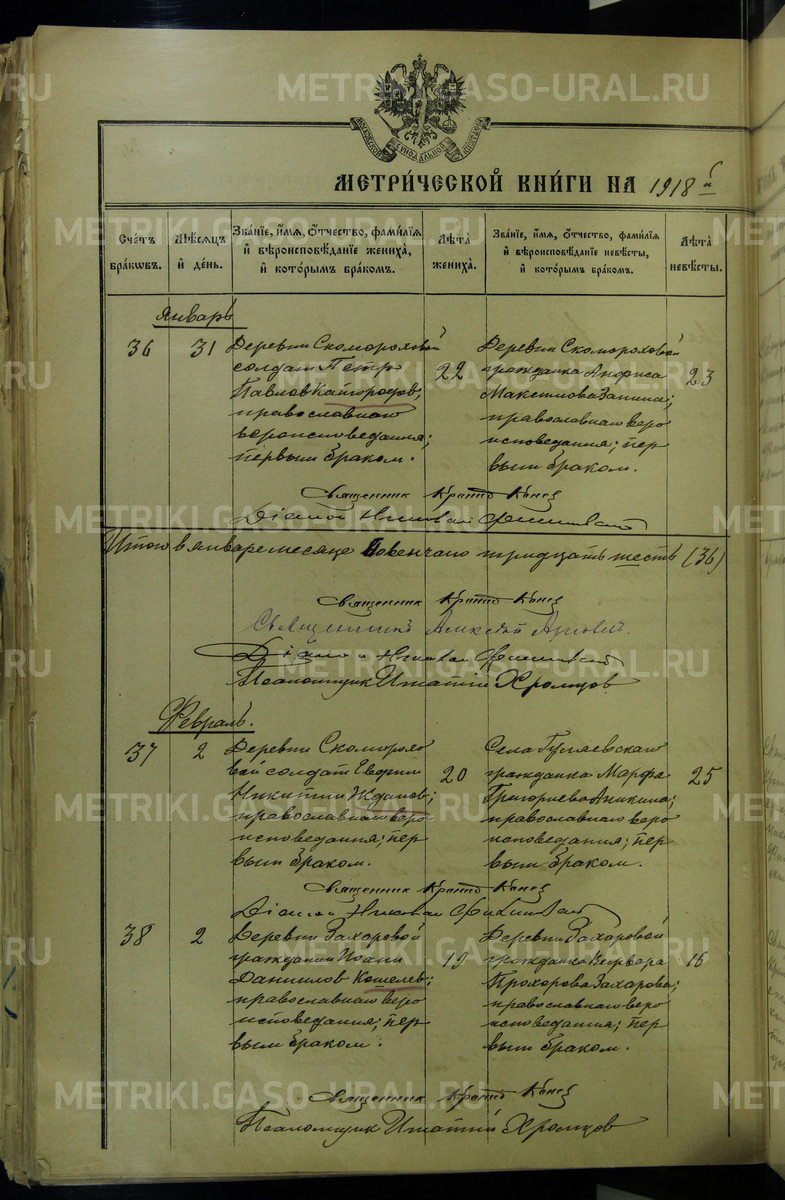 METRIKI.GASO-URAL.RU
МОСКОВСКОЙ СѴНОДАЛЬНОЙ ТИПОГРАФІИ
МЕТРИ́ЧЕСКОЙ КНИ́ГИ НА 1918 г.
Сче́тъ бра́кωвъ.
Мѣ́сяцъ и҆ де́нь.
Зва́нїе, и҆́мѧ, ѻ҆́тчество, фамилїѧ и҆ вѣроисповѣ́данїе жениха̀, и҆ кото́рымъ бра́комъ.
Лѣ́та жениха̀.
Зва́нїе, и҆́мѧ, ѻ҆́тчество, фамилїѧ и҆ вѣроисповѣ́данїе невѣ́сты, и҆ кото́рымъ бра́комъ.
Лѣ́та невѣ́сты.
Январь
36
31
Деревни Скомороховой
солдат Петр
Павлов Кайгородов,
православнаго
вероисповедания;
первым браком.
22
Деревни Скомороховой
гражданка Анфиса
Максимова Занина;
православнаго веро
исповедания; пер
вым браком.
23
Священник
Диакон Николай
Итого в январе месяце повенчано тридцать шесть (36)
Священник
Священникъ Алексей
Диакон Николай
Псаломщик Игнатий Хромцов
Февраль.
37
2
Деревни Скоморохо
вой солдат Евфим
Никитин Жданов;
православнаго веро
исповедания; пер
вым браком.
20
Села Гуляевскаго
гражданка Марфа
Григориева Аникина;
православнаго веро
исповедания; пер
вым браком.
25
Священник
Диакон Николай
38
2
Деревни Захаровой
гражданин Иоанн
Даниилов Кошелев;
православнаго веро
исповедания; пер
вым браком.
19
Деревни Захаровой
гражданка Варвара
Прохорова Захарова;
православнаго веро
исповедания; пер
вым браком.
16
Священник
Псаломщик Игнатий Хромцов